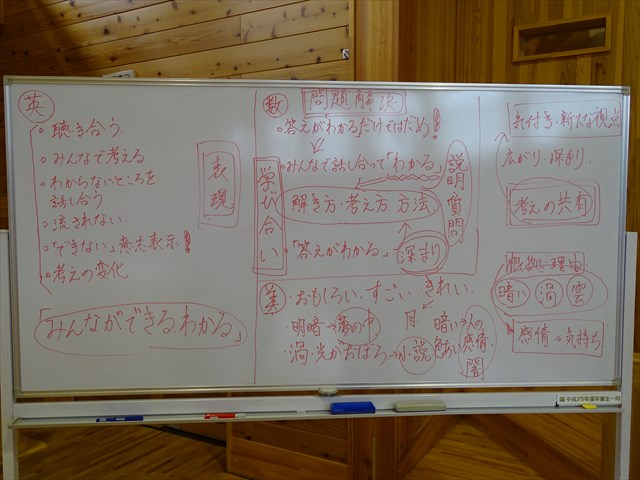 英
聴き合う.
みんなで考える
わからないところを
話し合う
流されない.
「できない」意志表示!
考えの変化
表現
「みんなができる.わかる」
数 問題解決
答えがわかるだけではだめ!
みんなで話し合って「わかる」
学び合い
解き方・考え方 方法
説明 質問
「答えがわかる」 深まり
美・おもしろい.すごい.きれい.
・明暗→夢の中
月.
暗い→人の感情・闇
色あい
・渦・光がおぼろ→小説
気付き・新たな視点
広がり.深まり.
考えの共有
根拠・理由
暗い 渦 雲
感情→気持ち
平成25年度卒業生一同